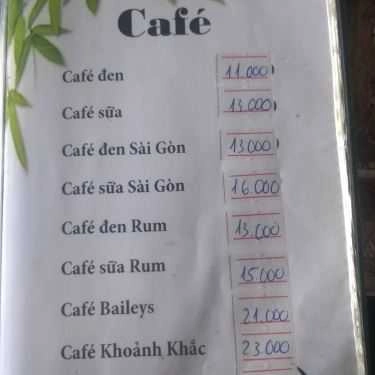 Café
Café đen 11.000
Café sữa 13.000
Café đen Sài Gòn 13000
Café sữa Sài Gòn 16.000
Café đen Rum 13.000
Café sữa Rum 15.000
Café Baileys 21.000
Café Khoảnh Khắc 23.000